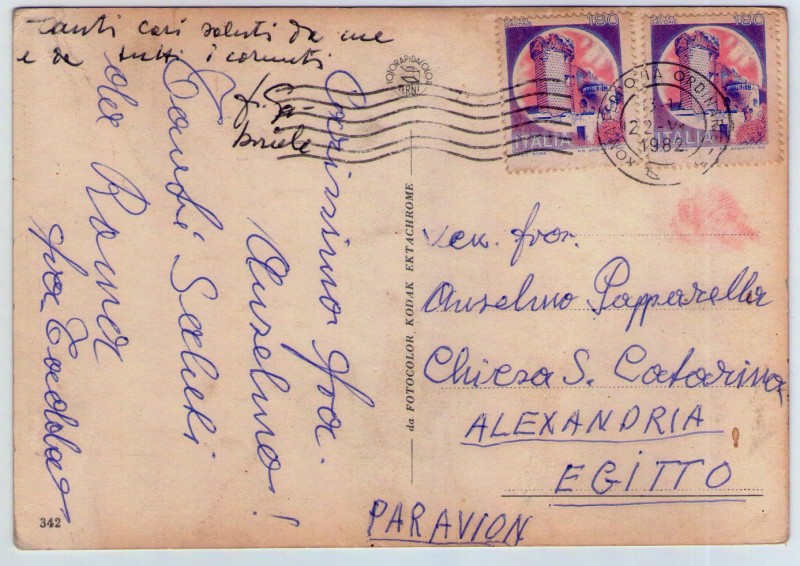 Tanti cari saluti da me
e da tutti i
f. Ga-
briele
Carissimo fra.
Anselmo!
Tanti Saluti
da Roma
fra
FOTORAPIDACOLOR
TERNI
da FOTOCOLOR KODAK EKTACHROME
342
180
ITALIA
180
ITALIA
ROMA
ORDINARIA
1982
Ven. fra.
Anselmo Papparella
Chiesa S. Catarina
ALEXANDRIA
EGITTO
PAR AVION